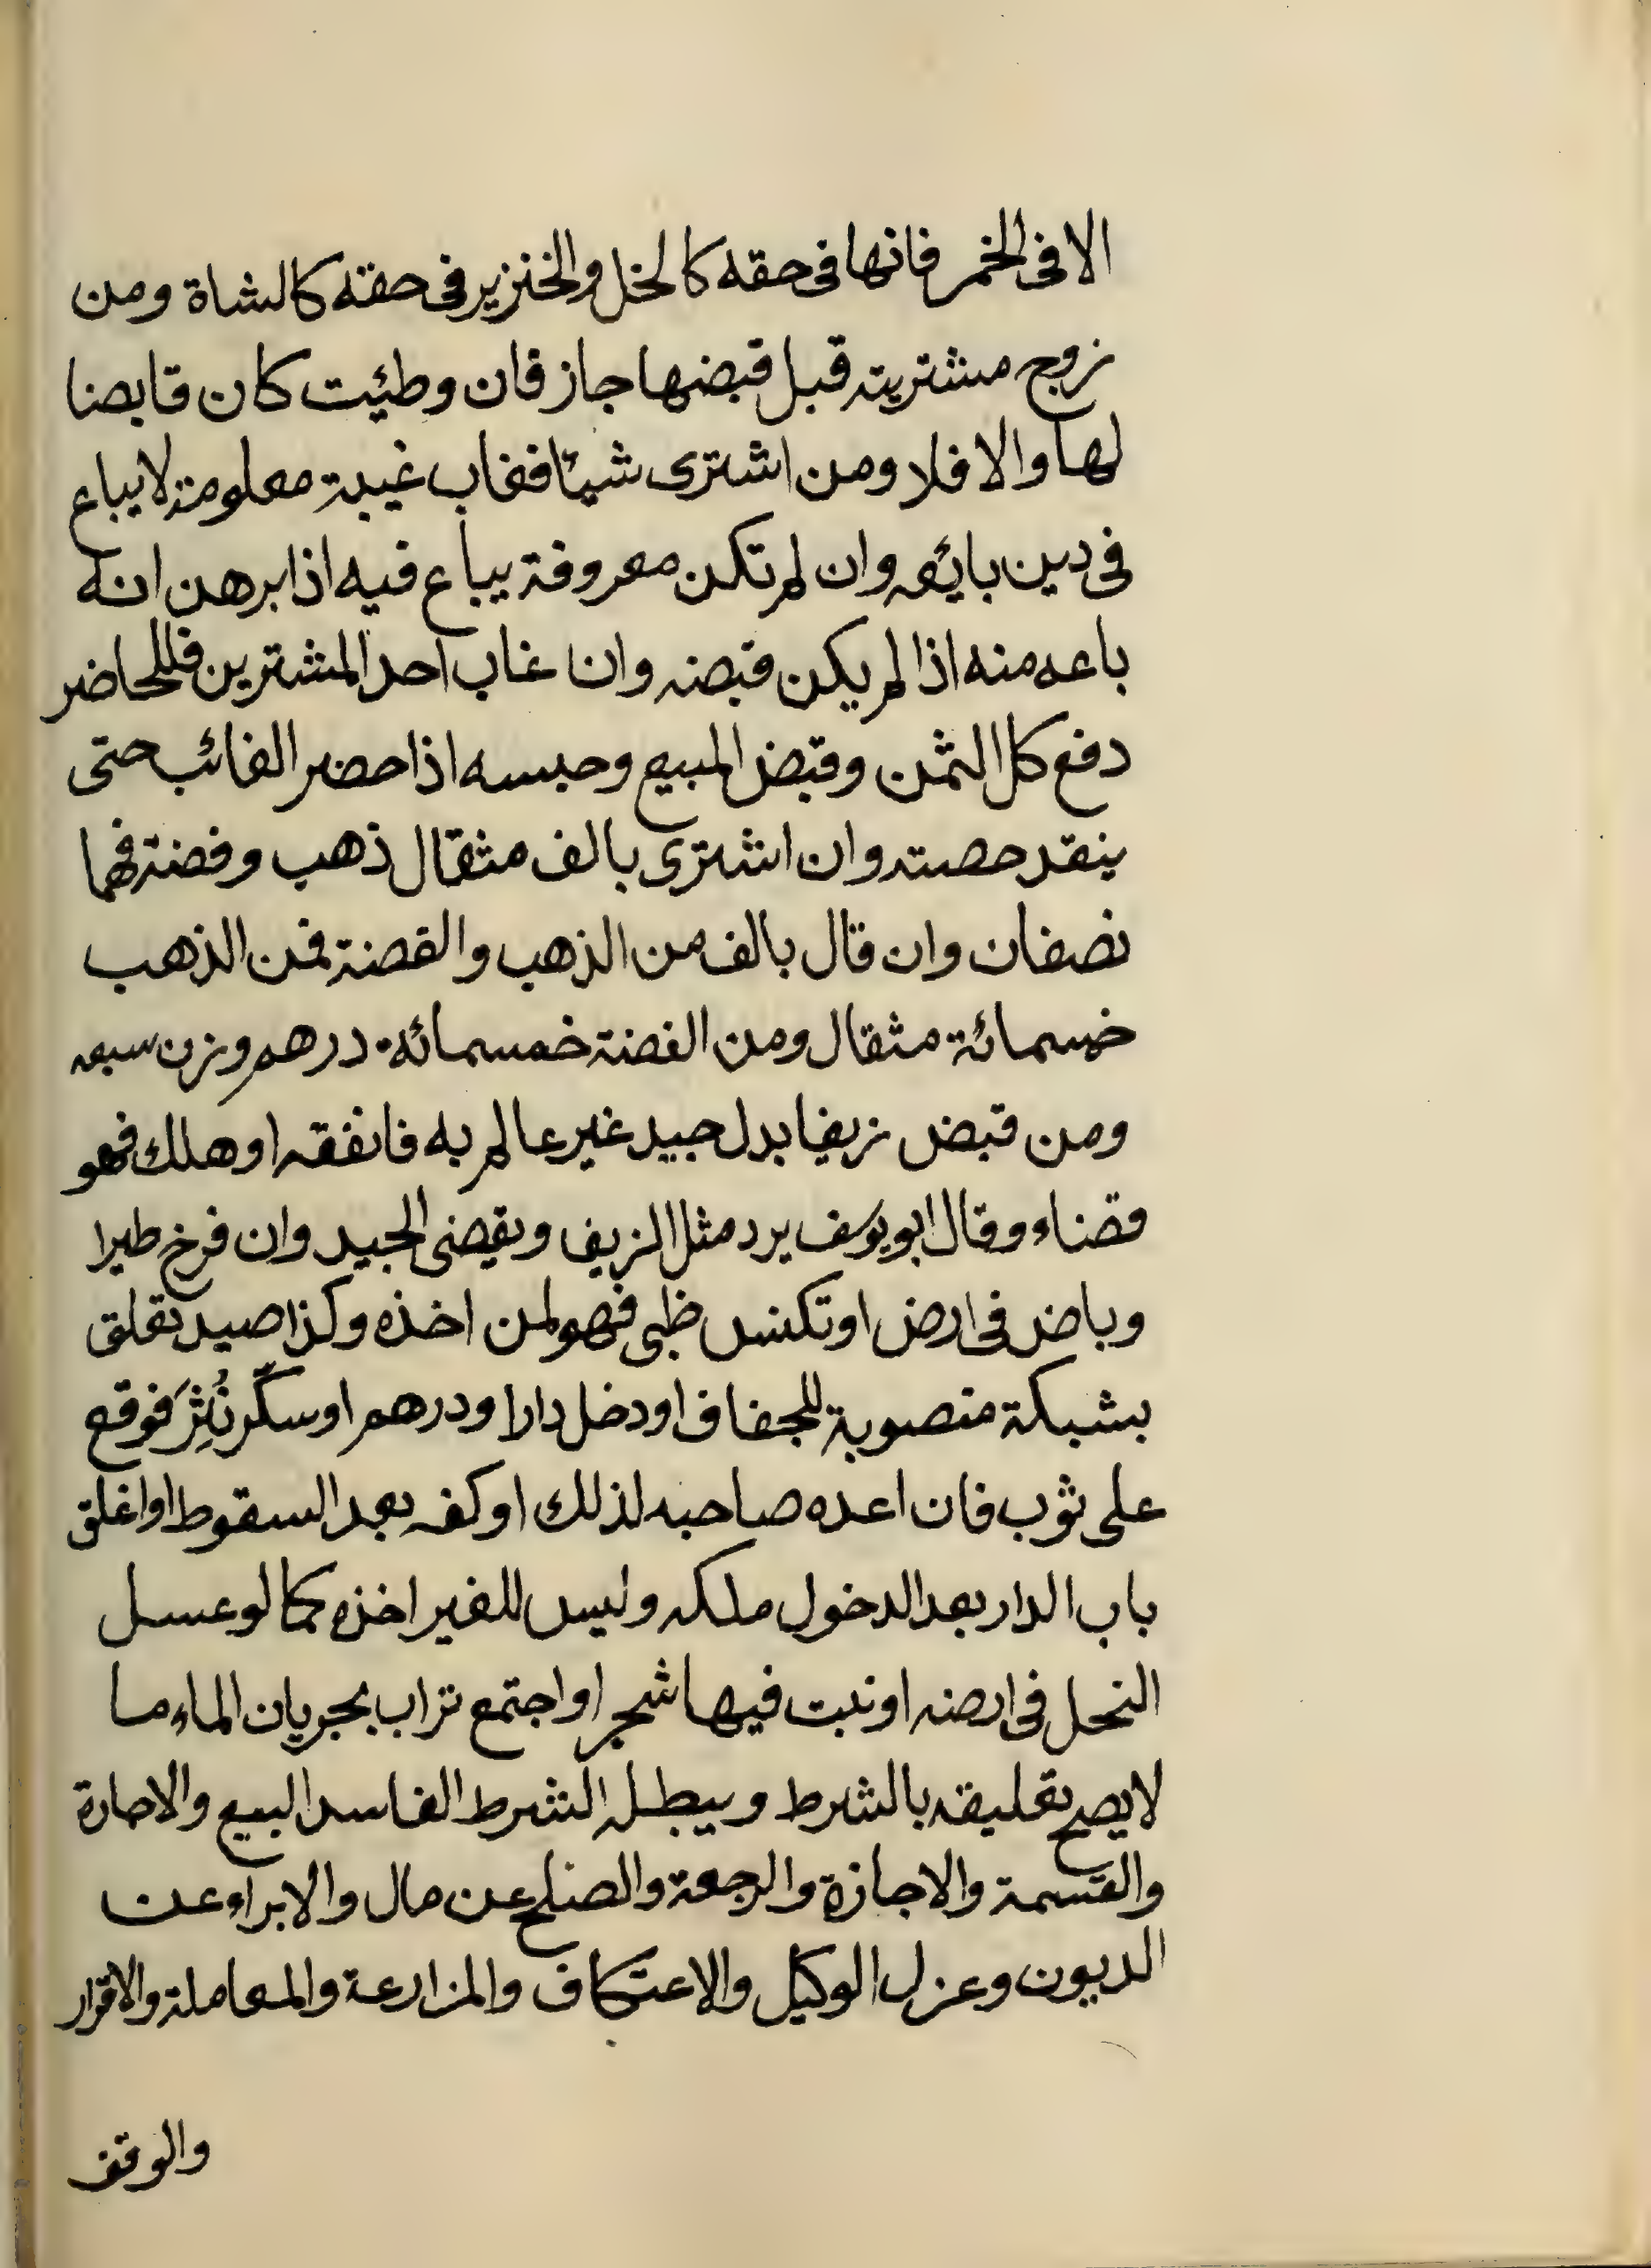 الا فى الخمر فانها فى حقه كالخل والخنزير فى حقه كالشاة ومن
زوج مشتريته قبل قبضها جاز فان وطئت كان قابضا
لها والا فلا ومن اشترى شيئا فغاب غيبة معلومة لا يباع
فى دين بائعه وان لم تكن معروفة يباع فيه اذا برهن انه
باعه منه اذا لم يكن قبضه وان غاب احد المشترين فللحاضر
دفع كل الثمن وقبض المبيع وحبسه اذا حضر الغائب حتى
ينقد حصته وان اشترى بالف مثقال ذهب وفضة فهما
نصفان وان قال بالف من الذهب والفضة فمن الذهب
خمسمائة مثقال ومن الفضة خمسمائه درهم وزن سبعه
ومن قبض زيفا بدل جيد غير عالم به فانفقه او هلك فهو
قضاء وقال ابو يوسف يرد مثل الزيف ويقضى الجيد وان فرخ طيرا
وباض فى ارض او تكنس ظبى فهو لمن اخذه وكذا صيد تعلق
بشبكة منصوبة للجفاف او دخل دارا ودرهم او سكّر نُثِرَ فوقع
على ثوب فان اعده صاحبه لذلك او كفه بعد السقوط او اغلق
باب الدار بعد الدخول ملكه وليس للغير اخذه كما لو عسل
النحل فى ارضه او نبت فيها شجر او اجتمع تراب بجريان الماء ما
لا يصح تعليقه بالشرط ويبطله الشرط الفاسد البيع والاجارة
والقسمة والاجازة والرجعة والصلح عن مال والابراء عن
الديون وعزل الوكيل والاعتكاف والمزارعة والمعاملة والاقرار
والوقف